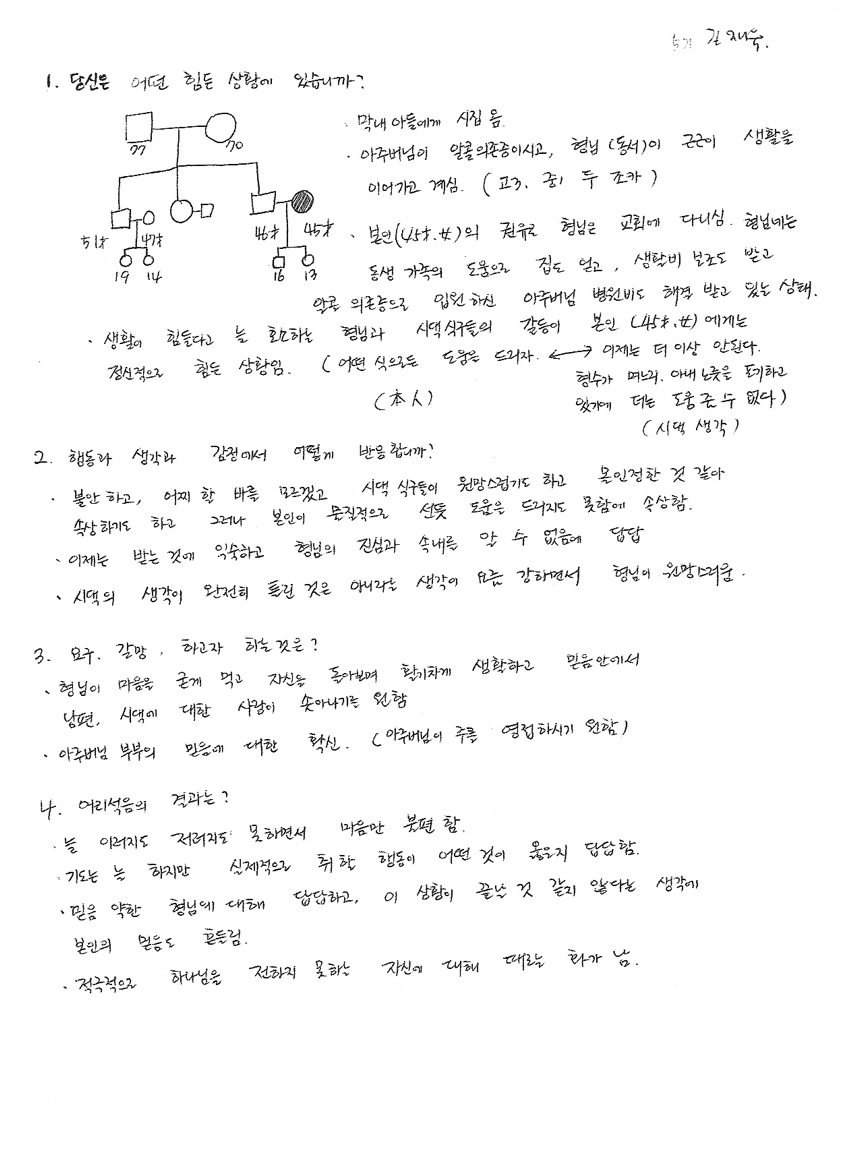 김재욱.
1. 당신은 어떤 힘든 상황에 있습니까?
77
70
51才
47才
46才
45才
19
14
16
13
· 막내 아들에게 시집 옴.
· 아주버님이 알콜의존증이시고, 형님(동서)이 근근이 생활을
이어가고 계심. (고3, 중1 두 조카)
· 본인(45才.女)의 권유로 형님은 교회에 다니심. 형님네는
동생 가족의 도움으로 집도 얻고, 생활비 보조도 받고
알콜 의존증으로 입원하신 아주버님 병원비도 해결 받고 있는 상태.
· 생활이 힘들다고 늘 호소하는 형님과 시댁식구들의 갈등이 본인(45才.女)에게는
정신적으로 힘든 상황임. (어떤 식으로든 도움은 드리자. ↔ 이제는 더 이상 안된다.
(本人)
형수가 며느리. 아내 노릇을 포기하고
있기에 더는 도움 줄 수 없다)
(시댁 생각)
2. 행동과 생각과 감정에서 어떻게 반응합니까?
· 불안하고, 어찌 할 바를 모르겠고 시댁 식구들이 원망스럽기도 하고 몰인정한 것 같아
속상하기도 하고 그러나 본인이 물질적으로 선뜻 도움은 드리지도 못함에 속상함.
· 이제는 받는 것에 익숙하고 형님의 진심과 속내를 알 수 없음에 답답
· 시댁의 생각이 완전히 틀린 것은 아니라는 생각이 요즘 강하면서 형님이 원망스러움.
3. 요구, 갈망, 하고자 하는것은?
· 형님이 마음을 굳게 먹고 자신을 돌아보며 활기차게 생활하고 믿음안에서
남편, 시댁에 대한 사랑이 솟아나기를 원함
· 아주버님 부부의 믿음에 대한 확신. (아주버님이 주를 영접하시기 원함)
4. 어리석음의 결과는?
· 늘 이러지도 저러지도 못하면서 마음만 불편 함.
· 기도는 늘 하지만 실제적으로 취할 행동이 어떤 것이 옳은지 답답함.
· 믿음 약한 형님에 대해 답답하고, 이 상황이 끝날 것 같지 않다는 생각에
본인의 믿음도 흔들림.
· 적극적으로 하나님을 전하지 못하는 자신에 대해 때로는 화가 남.